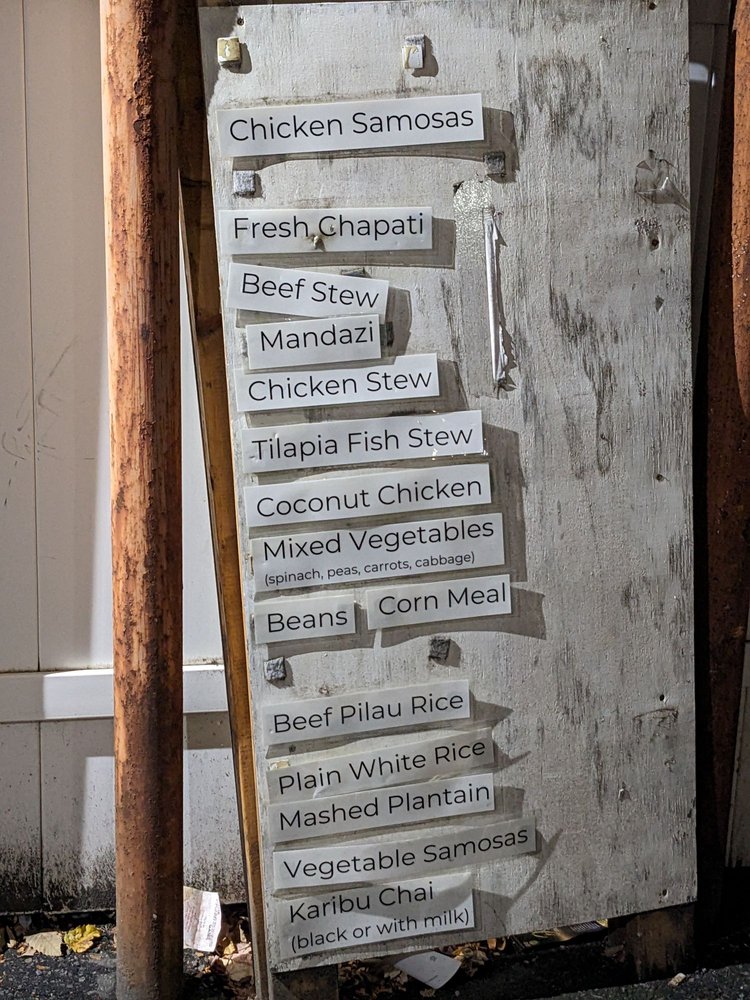 Chicken Samosas
Fresh Chapati
Beef Stew
Mandazi
Chicken Stew
Tilapia Fish Stew
Coconut Chicken
Mixed Vegetables
(spinach, peas, carrots, cabbage)
Beans
Corn Meal
Beef Pilau Rice
Plain White Rice
Mashed Plantain
Vegetable Samosas
Karibu Chai
(black or with milk)